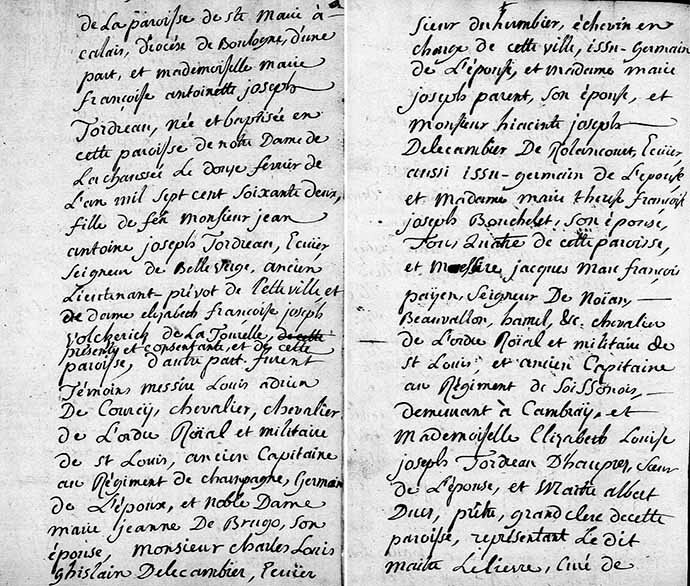 de La paroisse de ste Marie à
calais, diocèse de Boulogne, d'une
part, et mademoiselle marie
françoise antoinette joseph
Tordreau, née et baptisée en
cette paroisse de notre Dame de
La chaussée Le douze fevrier de
L'an mil sept cent soixante deux,
fille de feu monsieur jean
antoine joseph Tordreau, Ecuïer
Seigneur de Belleverge, ancien
Lieutenant-prévot de Cette ville, et
de dame elizabeth françoise joseph
Volckerick de La Tourelle, de cette
présente et consentante, et de cette
paroisse, d'autre part. furent
Témoins messire Louis adrien
De Courcy, chevalier, chevalier
de L'ordre Roïal et militaire
de st Louis, ancien Capitaine
au Régiment de champagne, Germain
de L'époux, et noble Dame
marie jeanne De Brugo, son
épouse, monsieur charles Louis
Ghislain Delecambier, Ecuïer
Sieur du humbier, échevin en
charge de cette ville, issu-Germain
de L'épouse, et madame marie
joseph parent, son épouse, et
Monsieur hiacinte joseph
Delecambier De Rolancourt, Ecuïer
aussi issu-germain de L'épouse
et Madame marie therese françoise
joseph Bouchelet, son épouse,
Tous Quatre de cette paroisse,
et Messire jacques Marc françois
payen, Seigneur De Noïan,
Beauvallon, hamel, &c. chevalier
de L'ordre Roïal et militaire de
st Louis, et ancien Capitaine
au Régiment de Soissonois,
demeurant à Cambray, et
Mademoiselle Elizabeth Louise
joseph Tordreau D'haupres, Sœur
de L'épouse, et Maitre albert
prêtre, grand clerc de cette
paroisse, représentant Le dit
maitre Lelievre, Curé de